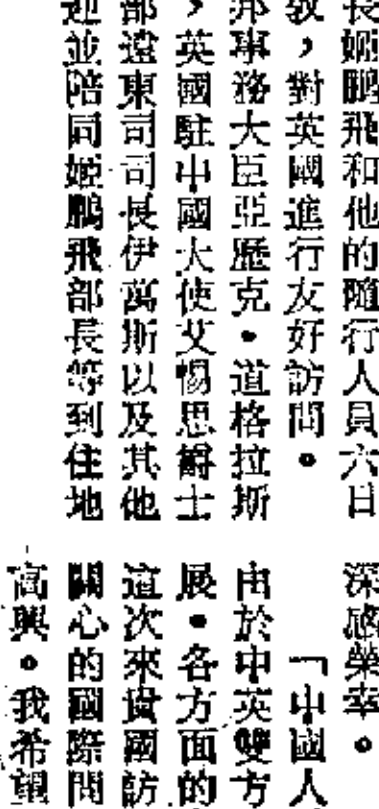 長姬鵬飛和他的隨行人員六日
敦，對英國進行友好訪問。
邦事務大臣亞歷克•道格拉斯
，英國駐中國大使艾惕思爵士
部遠東司司長伊萬斯以及其他
迎並陪同姬鵬飛部長等到住地
深感榮幸。
「中國人
由於中英雙方
展。各方面的
這次來貴國訪
關心的國際問
高興。我希望